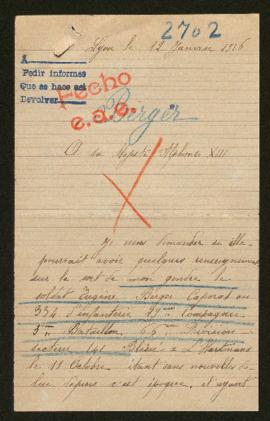 2702
Lyon le 12 Janvier 1916
A
Pedir informes
Que se hace así
Devolver
Fecho
e.a.e.
Berger
A sa Majesté Alphonse XIII
Je viens demander si elle
pourrait avoir quelques renseignements
sur le sort de mon gendre le
soldat Eugène Berger Caporal au
334 d'infanterie 19me Compagnie
5me Bataillon 66me Division
secteur Blessé à L'Hartmans
le 15 Octobre étant sans nouvelles de
lui depuis cette époque, et ayant